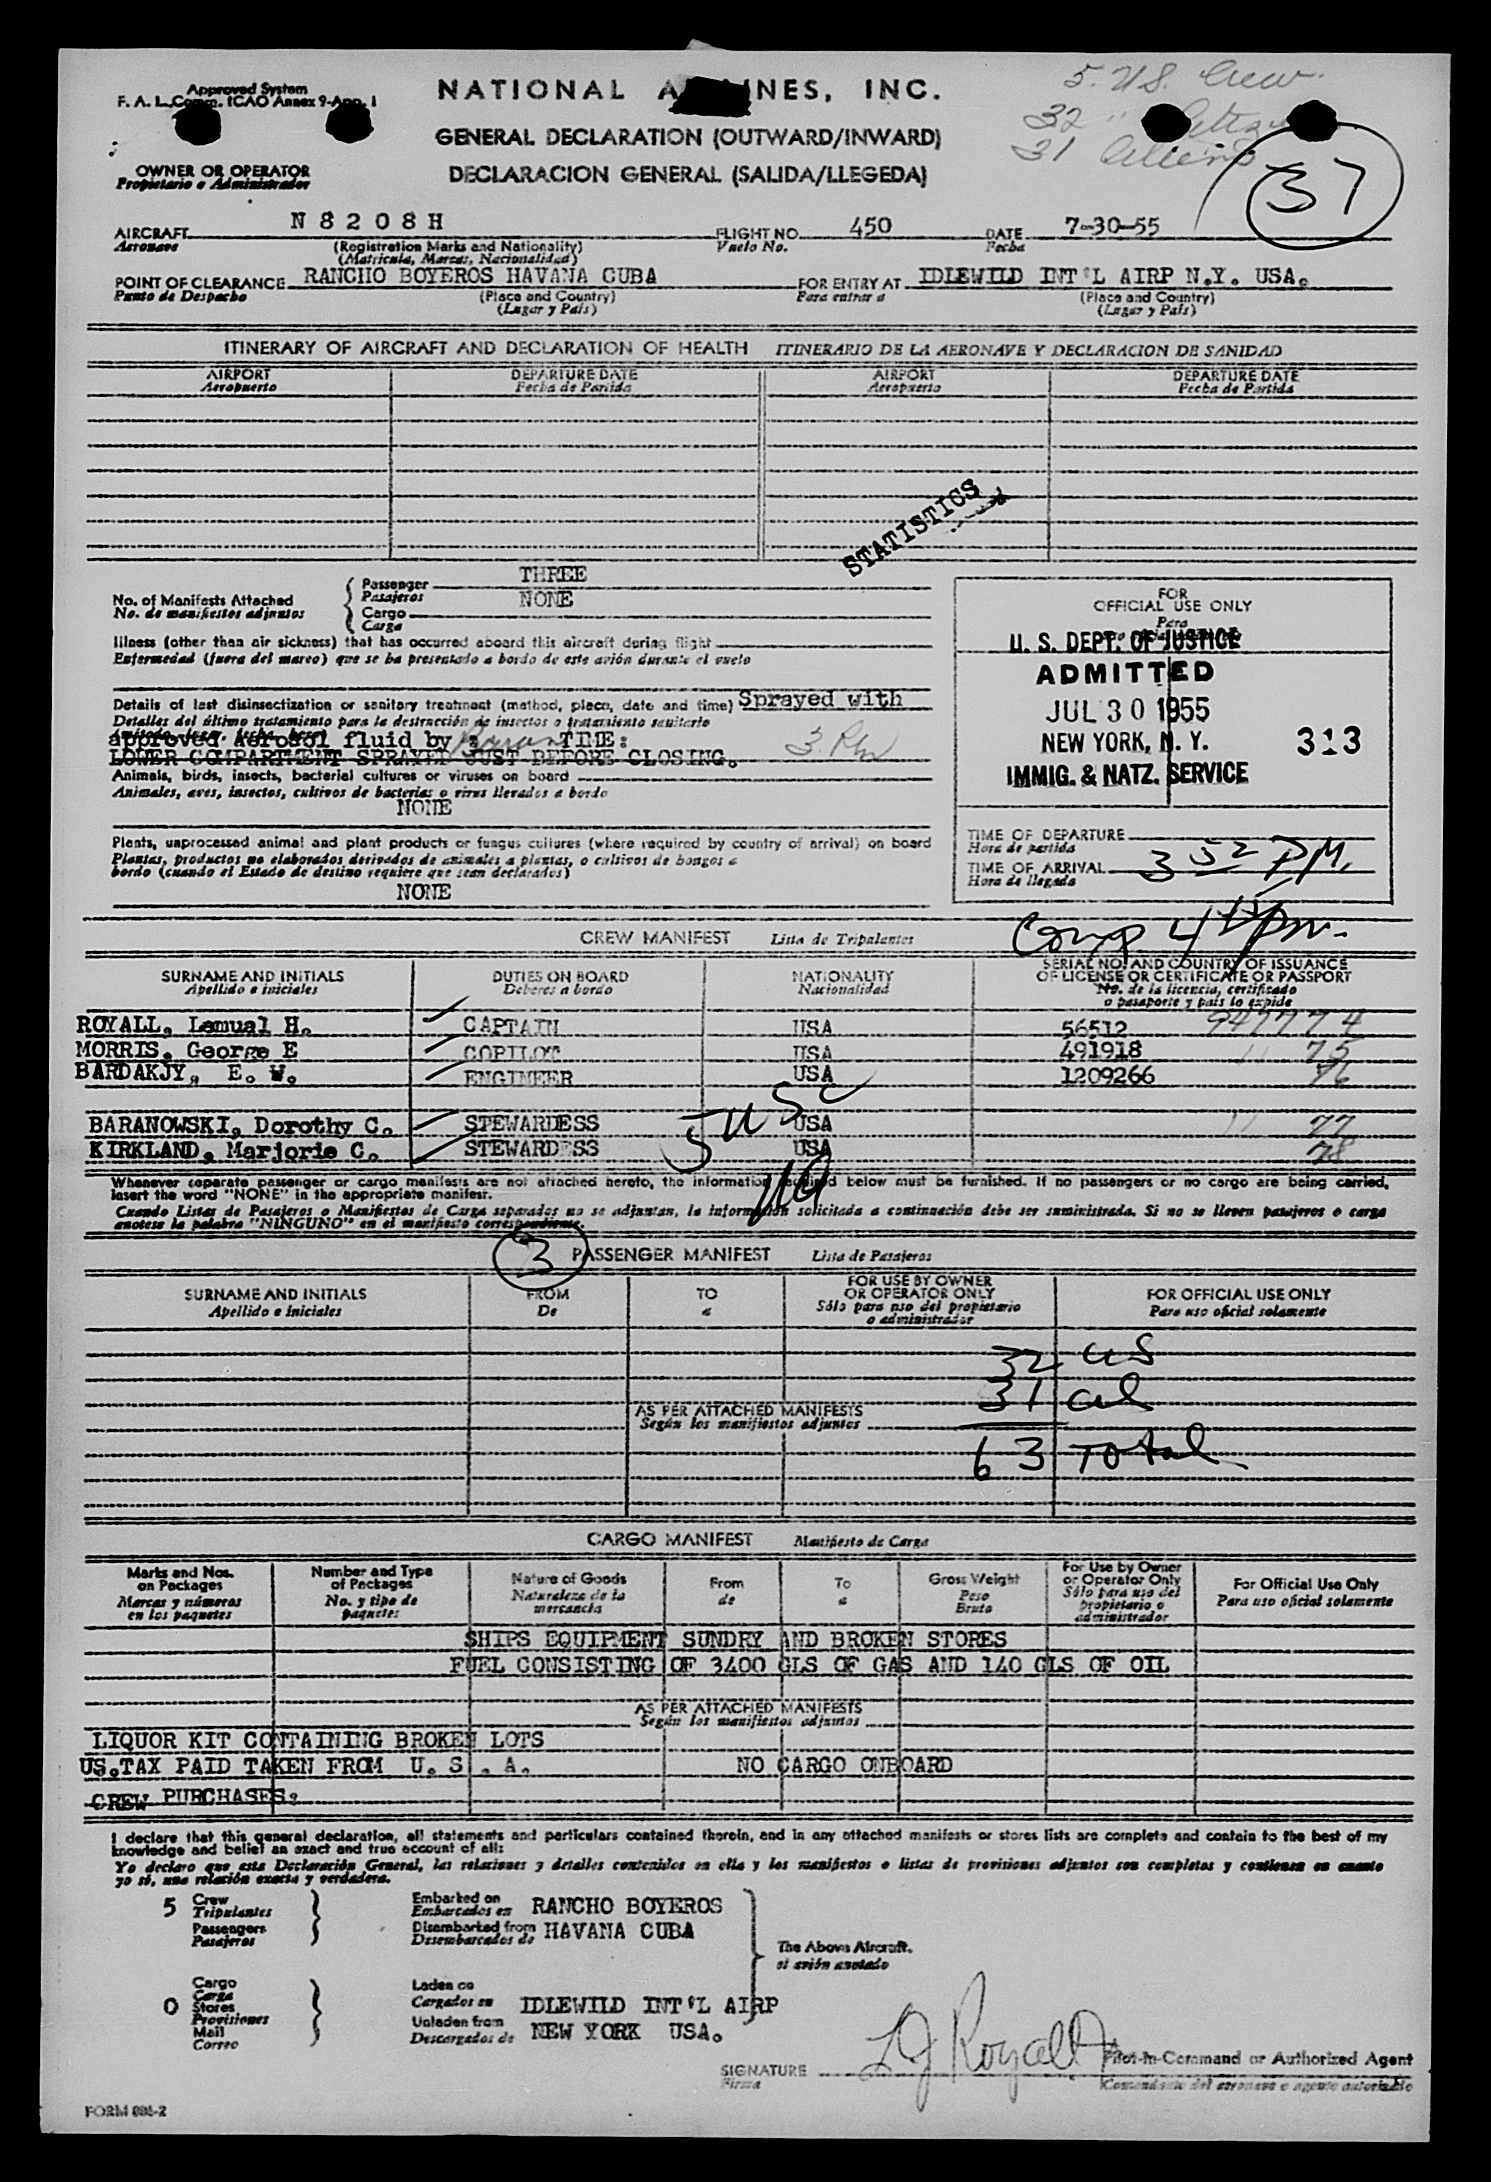 Approved System
F. A. L. Comm. ICAO Annex 9-App. 1
NATIONAL A NES, INC.
5. U.S. Crew
32 "
31 Aliens
37
GENERAL DECLARATION (OUTWARD/INWARD)
DECLARACION GENERAL (SALIDA/LLEGEDA)
OWNER OR OPERATOR
Propietario o Administrador
AIRCRAFT N 8 2 0 8 H FLIGHT NO. 450 DATE 7-30-55
Aeronave (Registration Marks and Nationality) Vuelo No. Fecha
(Matricula, Marcas, Nacionalidad)
POINT OF CLEARANCE RANCHO BOYEROS HAVANA CUBA FOR ENTRY AT IDLEWILD INT'L AIRP N.Y. USA.
Punto de Despacho (Place and Country) Para entrar a (Place and Country)
(Lugar y País) (Lugar y País)
ITINERARY OF AIRCRAFT AND DECLARATION OF HEALTH ITINERARIO DE LA AERONAVE Y DECLARACION DE SANIDAD
AIRPORT DEPARTURE DATE AIRPORT DEPARTURE DATE
Aeropuerto Fecha de Partida Aeropuerto Fecha de Partida
STATISTICS
No. of Manifests Attached Passenger THREE
No. de manifiestos adjuntos Pasajeros
Cargo NONE
Carga
Illness (other than air sickness) that has occurred aboard this aircraft during flight
Enfermedad (fuera del mareo) que se ha presentado a bordo de este avión durante el vuelo
Details of last disinsectization or sanitary treatment (method, place, date and time) Sprayed with
Detalles del último tratamiento para la destrucción de insectos o tratamiento sanitario
approved Aerosol fluid by : TIME: 3 PM
LOWER COMPARTMENT SPRAYED JUST BEFORE CLOSING.
Animals, birds, insects, bacterial cultures or viruses on board
Animales, aves, insectos, cultivos de bacterias o virus llevados a bordo
NONE
Plants, unprocessed animal and plant products or fungus cultures (where required by country of arrival) on board
Plantas, productos no elaborados derivados de animales a plantas, o cultivos de hongos a
bordo (cuando el Estado de destino requiere que sean declarados)
NONE
FOR
OFFICIAL USE ONLY
Para
U. S. DEPT. OF JUSTICE
ADMITTED
JUL 30 1955
NEW YORK, N. Y. 313
IMMIG. & NATZ. SERVICE
TIME OF DEPARTURE
Hora de partida
TIME OF ARRIVAL 3 52 PM.
Hora de llegada
Comp 4 pm.
CREW MANIFEST Lista de Tripulantes
SURNAME AND INITIALS DUTIES ON BOARD NATIONALITY SERIAL NO. AND COUNTRY OF ISSUANCE
Apellido e iniciales Deberes a bordo Nacionalidad OF LICENSE OR CERTIFICATE OR PASSPORT
No. de la licencia, certificado
o pasaporte y país lo expide
ROYALL, Lemual H. CAPTAIN USA 56512 947774
MORRIS. George E COPILOT USA 491918 " 75
BARDAKJY, E. W. ENGINEER USA 1209266 76
BARANOWSKI, Dorothy C. STEWARDESS USA " 77
KIRKLAND, Marjorie C. STEWARD SS USA 78
5 USC
Whenever separate passenger or cargo manifests are not attached hereto, the information required below must be furnished. If no passengers or no cargo are being carried,
insert the word "NONE" in the appropriate manifest.
Cuando Listas de Pasajeros o Manifiestos de Carga separados no se adjuntan, la información solicitada a continuación debe ser suministrada. Si no se lleven pasajeros o carga
anotese la palabra "NINGUNO" en el manifiesto correspondiente.
3 PASSENGER MANIFEST Lista de Pasajeros
SURNAME AND INITIALS FROM TO FOR USE BY OWNER FOR OFFICIAL USE ONLY
Apellido e iniciales De a OR OPERATOR ONLY Para uso oficial solamente
Sólo para uso del propietario
o administrador
32 US
31 al
AS PER ATTACHED MANIFESTS
Según los manifiestos adjuntos
63 Total
CARGO MANIFEST Manifiesto de Carga
Marks and Nos. Number and Type Nature of Goods From To Gross Weight For Use by Owner For Official Use Only
on Packages of Packages Naturaleza de la de a Peso or Operator Only Para uso oficial solamente
Marcas y números No. y tipo de mercancia Bruto Sólo para uso del
en los paquetes paquetes propietario o
administrador
SHIPS EQUIPMENT SUNDRY AND BROKEN STORES
FUEL CONSISTING OF 3400 GLS OF GAS AND 140 GLS OF OIL
AS PER ATTACHED MANIFESTS
Según los manifiestos adjuntos
LIQUOR KIT CONTAINING BROKEN LOTS
US.TAX PAID TAKEN FROM U. S . A. NO CARGO ONBOARD
CREW PURCHASES:
I declare that this general declaration, all statements and particulars contained therein, and in any attached manifests or stores lists are complete and contain to the best of my
knowledge and belief an exact and true account of all:
Yo declaro que esta Declaración General, las relaciones y detalles contenidos en ella y los manifiestos o listas de provisiones adjuntos son completos y contienen en cuanto
yo sé, una relación exacta y verdadera.
5 Crew Embarked on RANCHO BOYEROS
Tripulantes Embarcados en
Passengers Disembarked from HAVANA CUBA
Pasajeros Desembarcados de
The Above Aircraft.
el avión anotado
Cargo Laden on
Carga Cargados en IDLEWILD INT'L AIRP
0 Stores
Provisiones Unladen from NEW YORK USA.
Mail Descargados de
Correo
SIGNATURE Pilot-in-Command or Authorized Agent
Firma Comandante del aeronave o agente autorizado
FORM 098-2